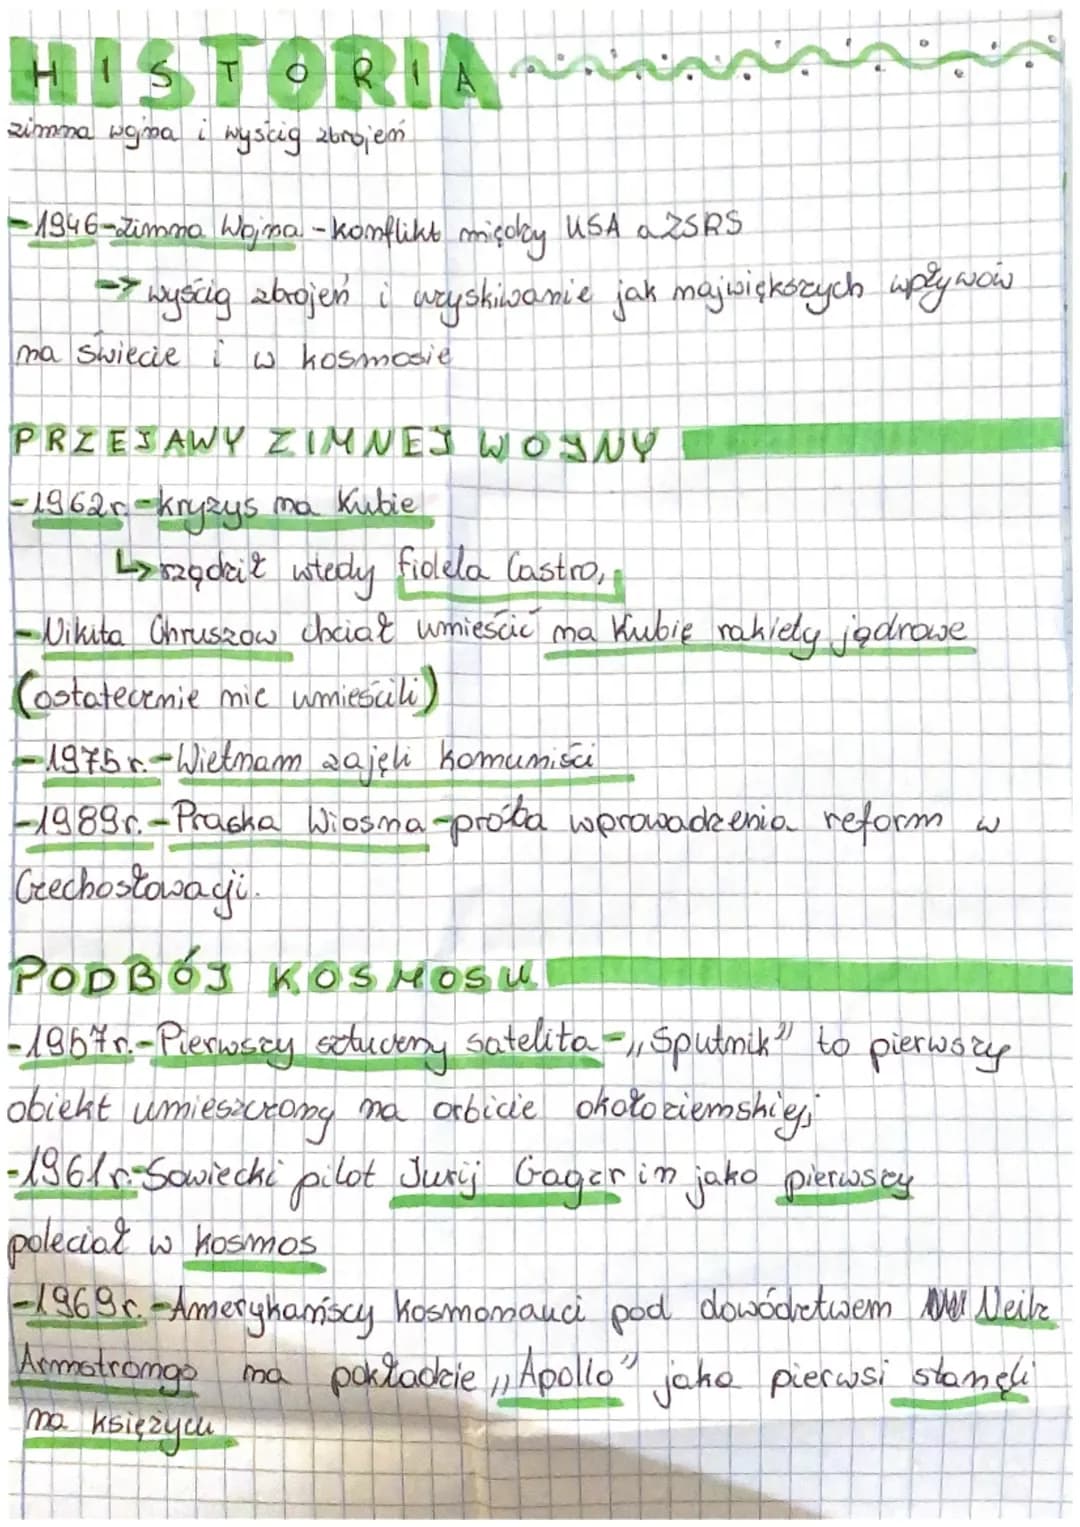 HISTORIA
zimna wojna i wyścig zbrojeń
-1946-Zimna Wojna-konflikt między USA a ZSRS
-> wyścig zbrojeń i uzyskiwanie jak największych wpływów
na świecie i w kosmosie
PRZEJAWY ZIMNEJ WOJNY
-1962r.-kryzys na Kubie
↳ rządził wtedy Fidela Castro,
-Nikita Chruszow chciał umieścić na Kubię rakiety jądrowe
(ostatecznie nic umieścili)
-1975r.-Wietnam zajęli komuniści
-1989r.-Praska Wiosna-próba wprowadzenia reform w
Czechosłowacji.
PODBÓJ KOSMOSU
-1957r.-Pierwszy sztuczny satelita-„Sputnik" to pierwszy
obiekt umieszczony na orbicie okołoziemskiej;
-1961r.-Sowiecki pilot Jurij Gagarin jako pierwszy
poleciał w kosmos
-1969r.-Amerykańscy kosmonauci pod dowództwem Neila
Armstronga na pokładzie „Apollo" jako pierwsi stanęli
na księżycu